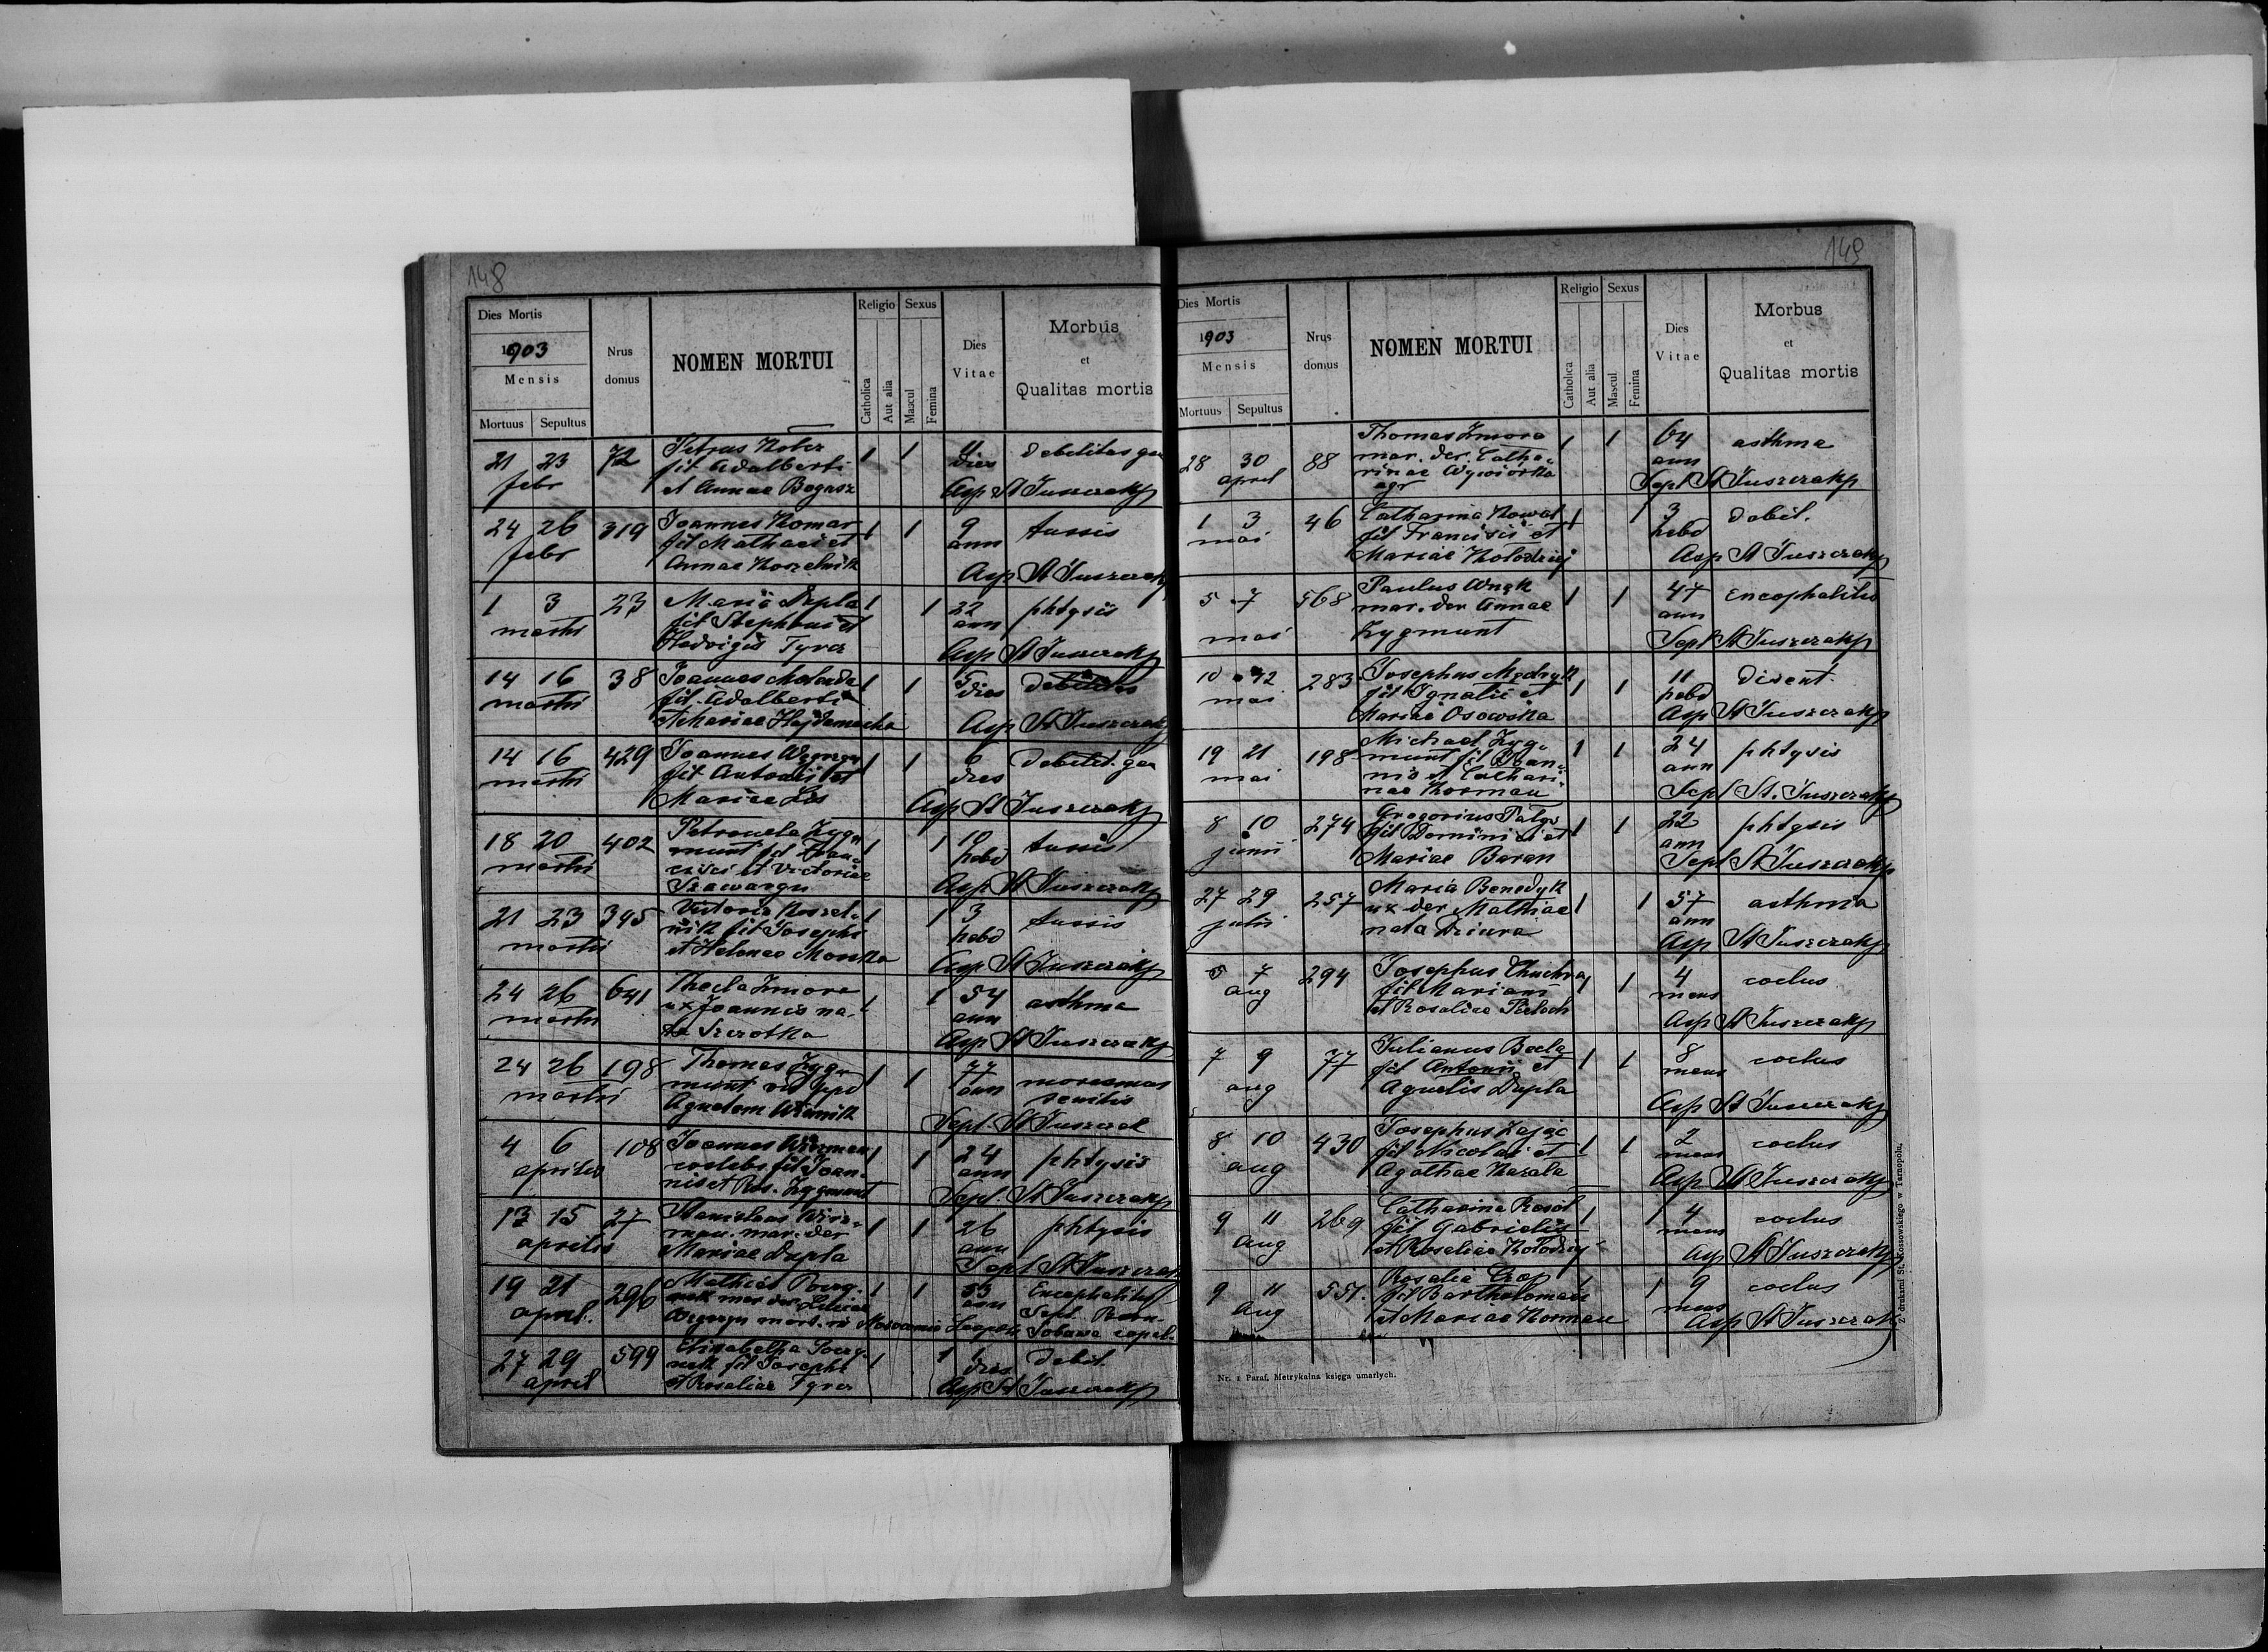 148
Dies Mortis
1903
Mensis
Mortuus Sepultus
Nrus domus
NOMEN MORTUI
Religio
Catholica
Aut alia
Sexus
Mascul
Femina
Dies Vitae
Morbus
et
Qualitas mortis
21 23 72 Petrus 1 1 11 debilitas gen
febr fil Adalberti dies
et Annae Bogusz Asp St Juszczak
24 26 319 Joannes Komar 1 1 9 tussis
febr fil Mathaei et ann
Annae Koszelnik Asp St Juszczak
1 3 23 Maria Dupla 1 1 22 phtysis
martii fil Stephani et ann
Hedvigis Asp St Juszczak
14 16 38 Joannes 1 1 5 debilitas
martii fil. Adalberti dies
et Mariae Hajdamacha Asp St Juszczak
14 16 429 Joannes 1 1 6 debilit. gen
martii fil Antonii et dies
Mariae Lis Asp St Juszczak
18 20 402 Petronela Zyg- 1 1 10 tussis
martii munt fil Fran- hebd
cisci et Victoriae
Asp St Juszczak
21 23 345 Victoria Koszel- 1 1 3 tussis
martii nik fil Josephi hebd
et Helenae Asp St Juszczak
24 26 641 Thecla Zmora 1 1 54 asthma
martii ux Joannis na- ann
ta Szczotka Asp St Juszczak
24 26 198 Thomas Zyg- 1 1 77 marasmus
martii munt ann senilis
Agnetem Winnik Sepl. St Juszczak
4 6 108 Joannes 1 1 24 phtysis
aprilis coelebs fil Joan- ann
nis et Ros. Zygmunt Sepl. St Juszczak
13 15 27 Stanislaus 1 1 26 phtysis
aprilis mar. der ann
Mariae Dupla Sepl St Juszczak
19 21 296 Mathias 1 1 53 Encephalitis
april. mar der ann Sepl.
mort. in
27 29 599 Elisabetha 1 1 1 debil.
april fil Josephi dies
et Rosaliae Asp St Juszczak
149
Dies Mortis
1903
Mensis
Mortuus Sepultus
Nrus domus
NOMEN MORTUI
Religio
Catholica
Aut alia
Sexus
Mascul
Femina
Dies Vitae
Morbus
et
Qualitas mortis
28 30 88 Thomas Zmora 1 1 64 asthma
april mar. der. Catha- ann
rinae Wywiorka
agr Sepl St Juszczak
1 3 46 Catharina Kowal 1 1 3 debil.
mai fil Francisci et hebd
Mariae Kolodziej Asp St Juszczak
5 7 568 Paulus Wnęk 1 1 47 Encephalitis
mai mar. der Annae ann
Zygmunt Sepl St Juszczak
10 12 283 Josephus Mędryk 1 1 11
mai fil Ignatii et hebd
Mariae Osowska Asp St Juszczak
19 21 198 Michael Zyg- 1 1 24 phtysis
mai munt fil Joan- ann
nis et Cathari-
nae Korman Sepl St. Juszczak
8 10 274 Gregorius 1 1 22 phtysis
junii fil Dominici et ann
Mariae Baran Sepl St Juszczak
27 29 257 Maria Benedyk 1 1 57 asthma
julii ux der Mathiae ann
nata Dziura Asp St Juszczak
5 7 294 Josephus Chuchra 1 1 4 coclus
aug fil Mariani mens
et Rosaliae Asp St Juszczak
7 9 77 Julianus 1 1 8 coclus
aug fil Antonii et mens
Agnetis Dupla Asp St Juszczak
8 10 430 Josephus Zając 1 1 2 coclus
aug fil Nicolai et mens
Agathae Asp St Juszczak
9 11 269 Catharina Rosół 1 1 4 coclus
aug fil Gabrielis mens
et Rosaliae Kołodziej Asp St Juszczak
9 11 551. Rosalia Czop 1 1 9 coclus
aug fil Bartholomaei mens
et Mariae Korman Asp St Juszczak
Nr. 1 Paraf. Metrykalna księga umarłych.
Z drukarni St. Kossowskiego w Tarnopolu.